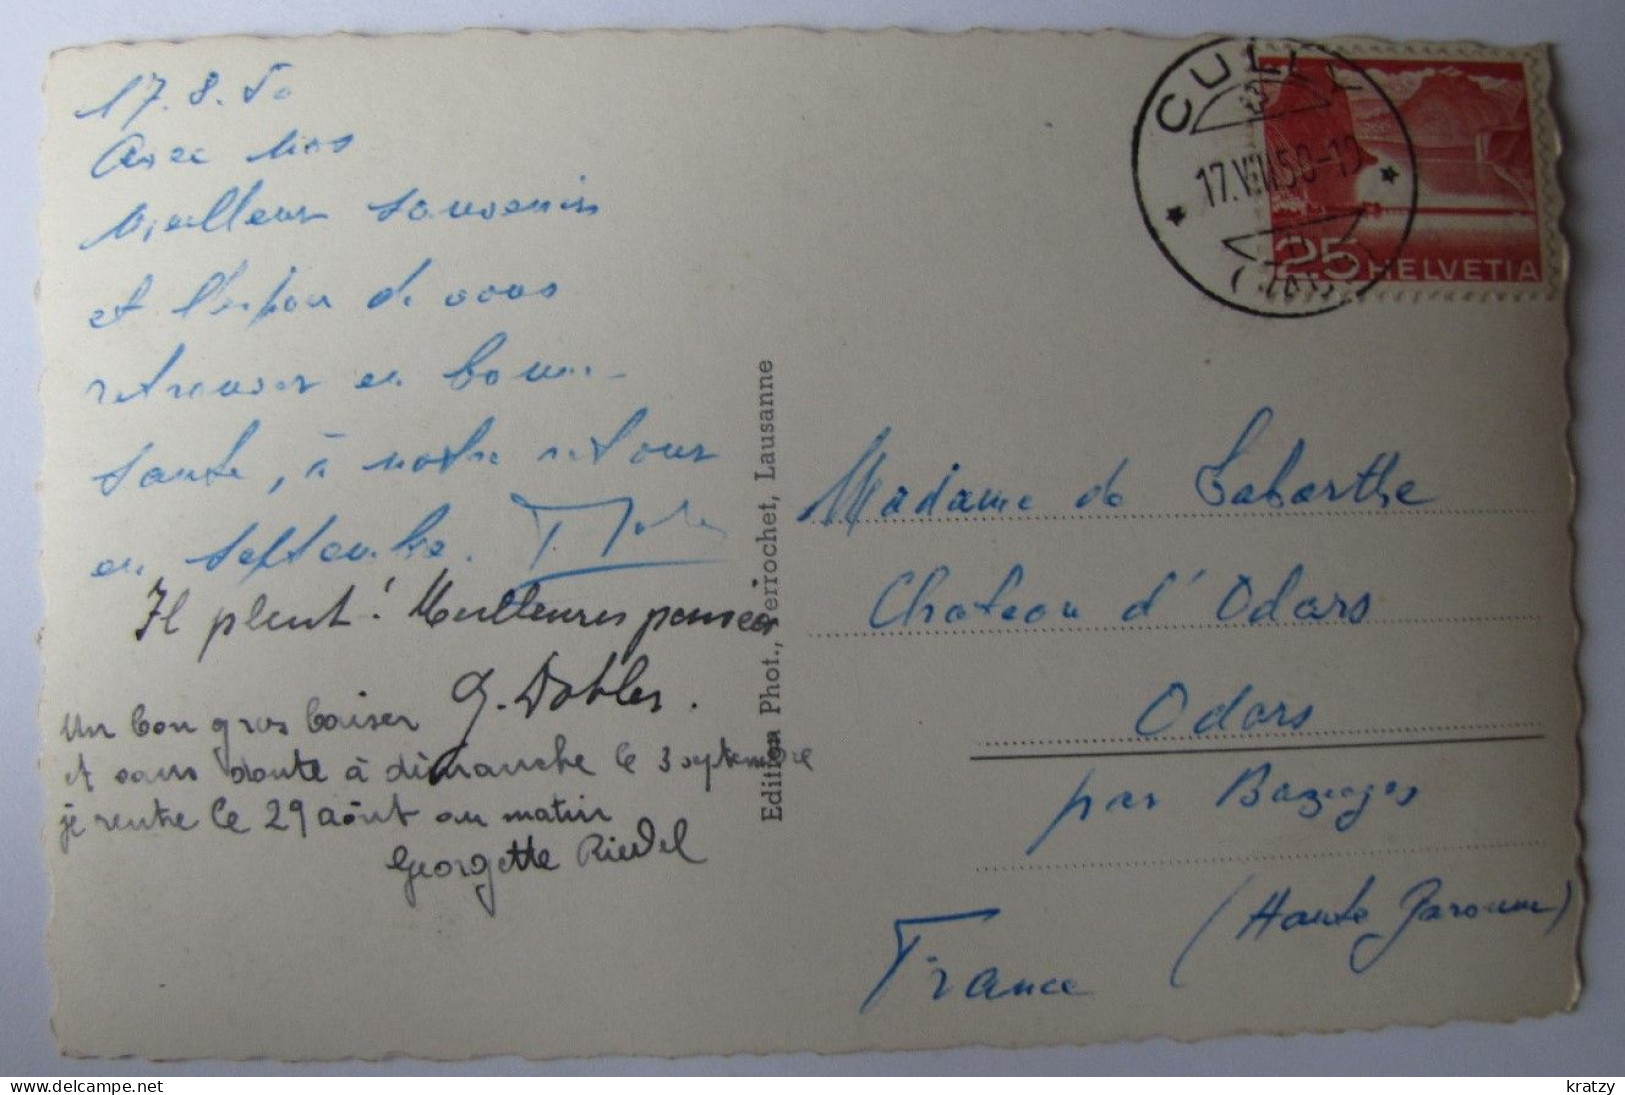 17.8.50
Avec nos
meilleurs souvenirs
et l'espoir de vous
retrouver en bonne
santé, à notre retour
en septembre.
Il pleut! Meilleures pensées
G. Dobler.
Un bon gros baiser
et sans doute à dimanche le 3 septembre
je rentre le 29 août au matin
Georgette Riedel
Edition Phot., Perrochet, Lausanne
CULLY
17.VIII.50-19
25 HELVETIA
Madame de Labarthe
Chateau d'Odars
Odars
par Baziéges
(Haute Garonne)
France
kratzy